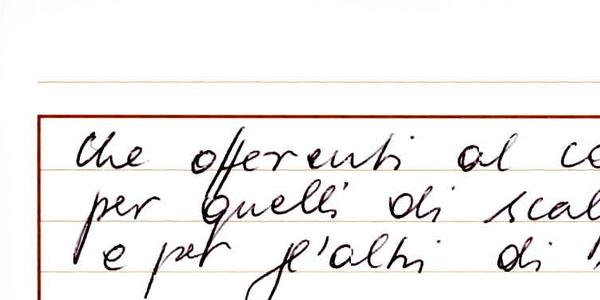 che offerenti al co
per quelli di scal
e per gl'altri di